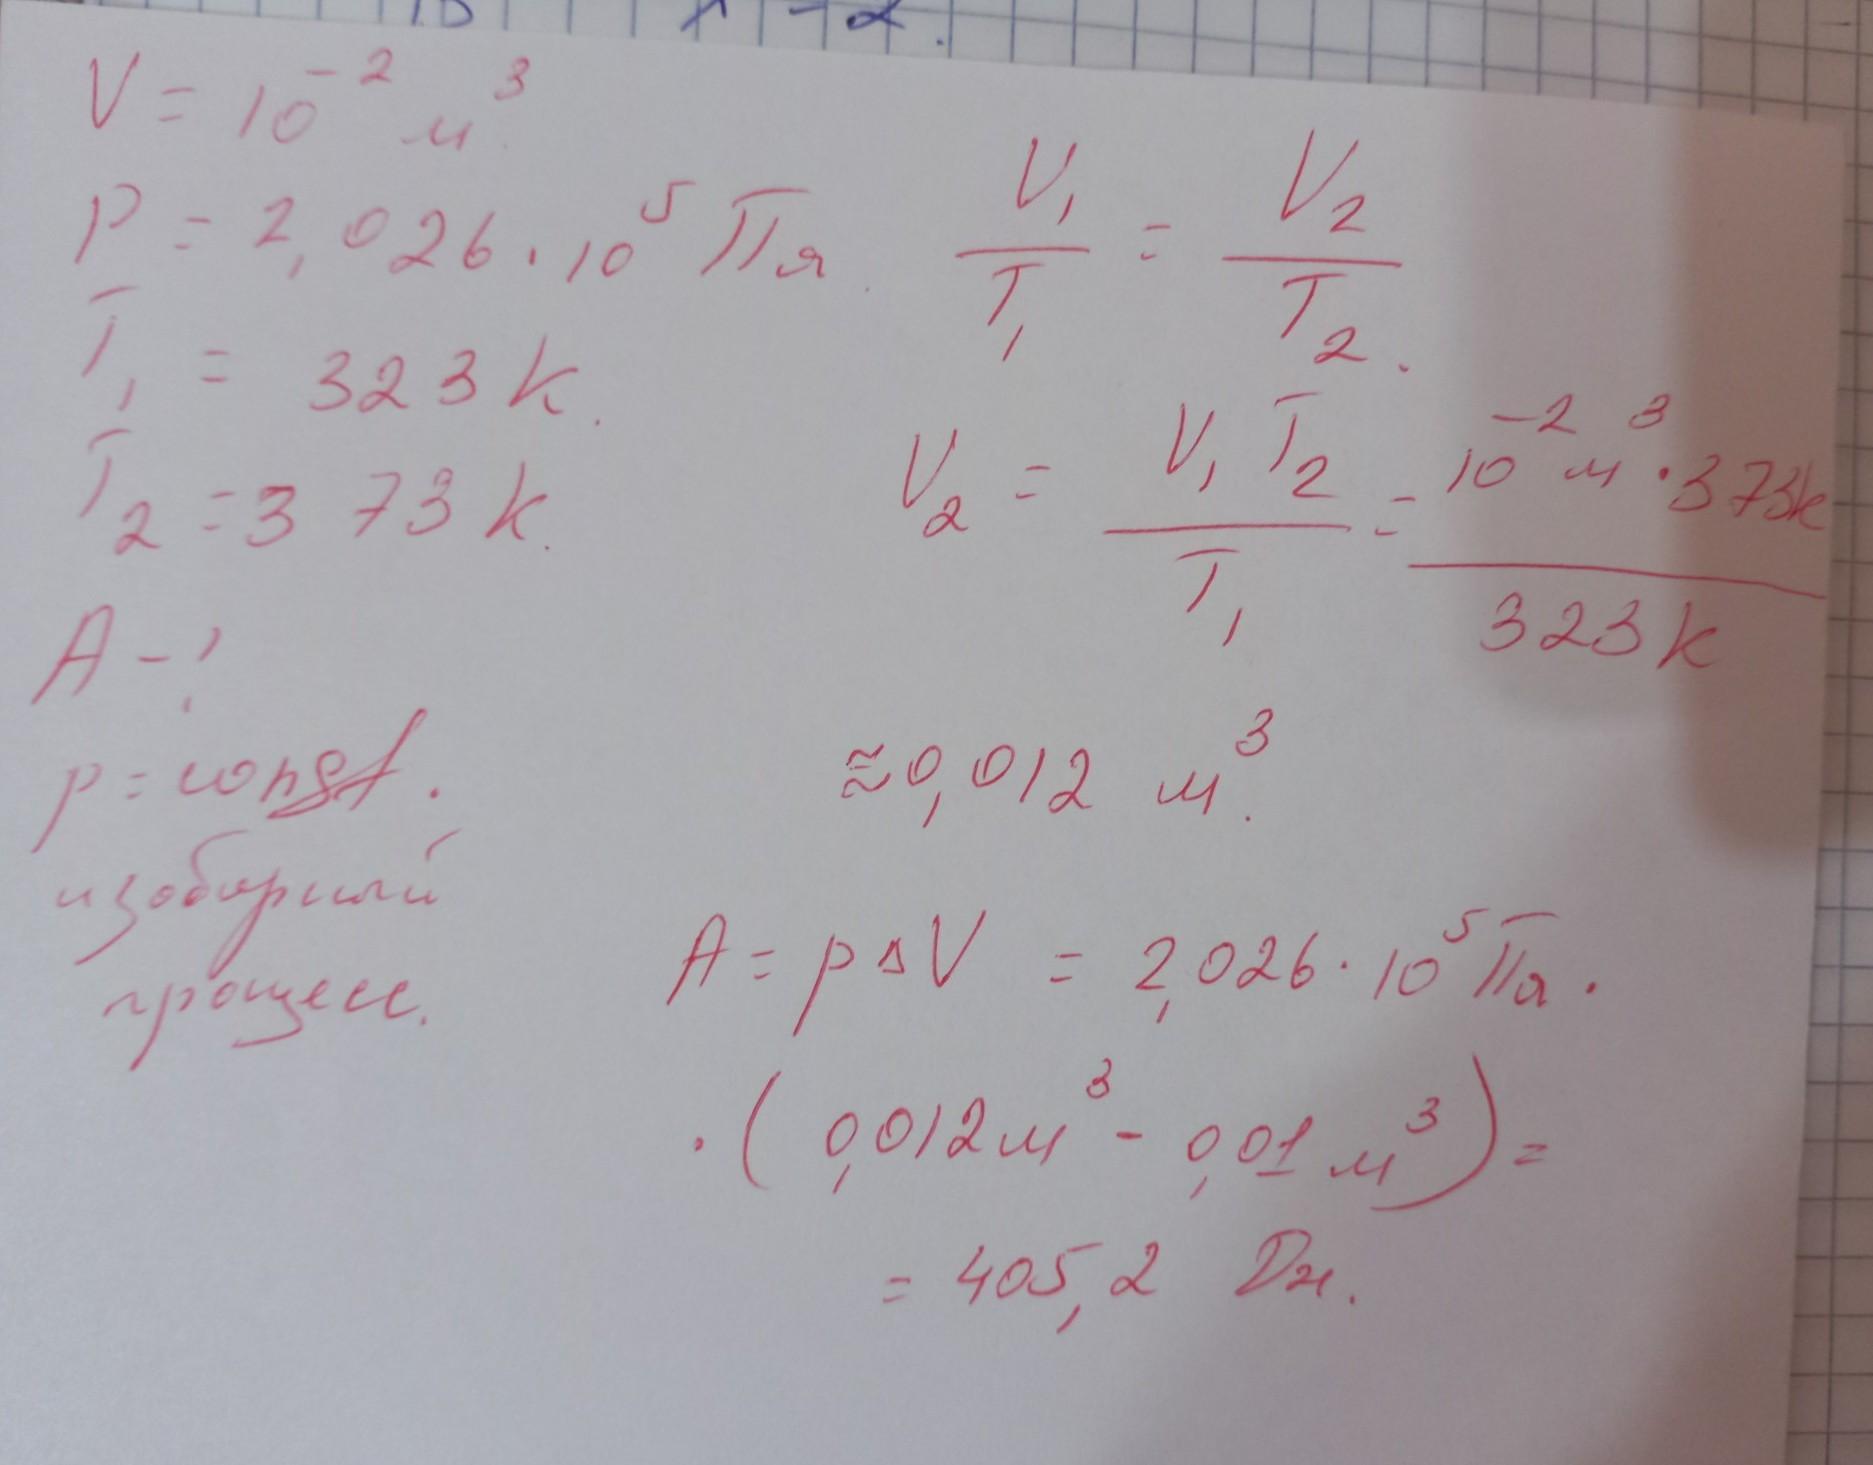 V = 10⁻² м³.
P = 2,026 · 10⁵ Па.
T₁ = 323 К.
T₂ = 373 К.
A - ?
p = const.
изобарный
процесс.
V₁/T₁ = V₂/T₂.
V₂ = V₁T₂/T₁ = 10⁻² м³ · 373К/323К
≈ 0,012 м³.
A = pΔV = 2,026 · 10⁵ Па ·
· (0,012 м³ - 0,01 м³) =
= 405,2 Дж.